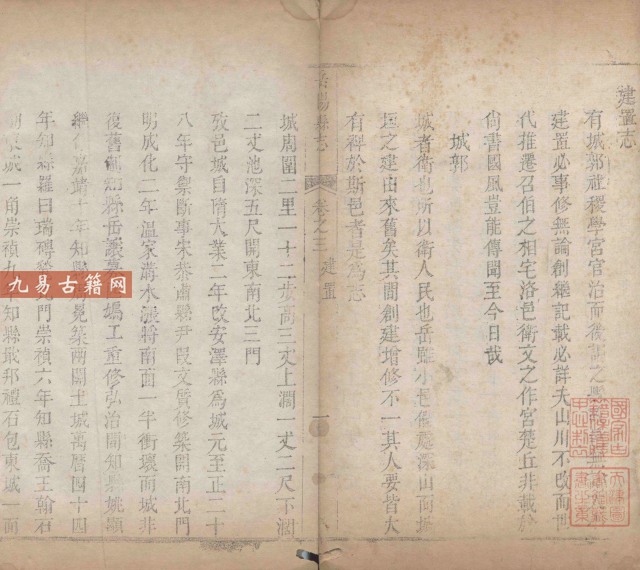 建置志
有城郭社稷學宮官治而後
建置必事修無論創舉記載必詳夫山川不改而世
代推遷召伯之相宅洛邑衛文之作宮楚丘非載於
尚書國風豈能傳聞至今日哉
城郭
城者衛也所以衛人民也岳雖小邑僻處深山而城
垣之建由來舊矣其間創建增修不一其人要皆大
有裨於斯邑者是為志
岳陽縣志
卷之三
建置
一
城周圍二里一十二步高三丈上濶一丈二尺下濶
二丈池深五尺開東南北三門
攷邑城自隋大業二年改安澤縣為城元至正二十
八年守禦斷事宋恭肅縣尹段文質修築開南北門
明成化二年温家溝水漲將南面一半衝壞而城非
復舊制知縣岳讓工重修弘治間知縣姚顯
嘉靖十年知縣築兩關土城萬曆四十四
年知縣羅曰瑞磚門崇禎六年知縣喬王翰石
城一角崇禎九年知縣邦禮石包東城一面
九易古籍网